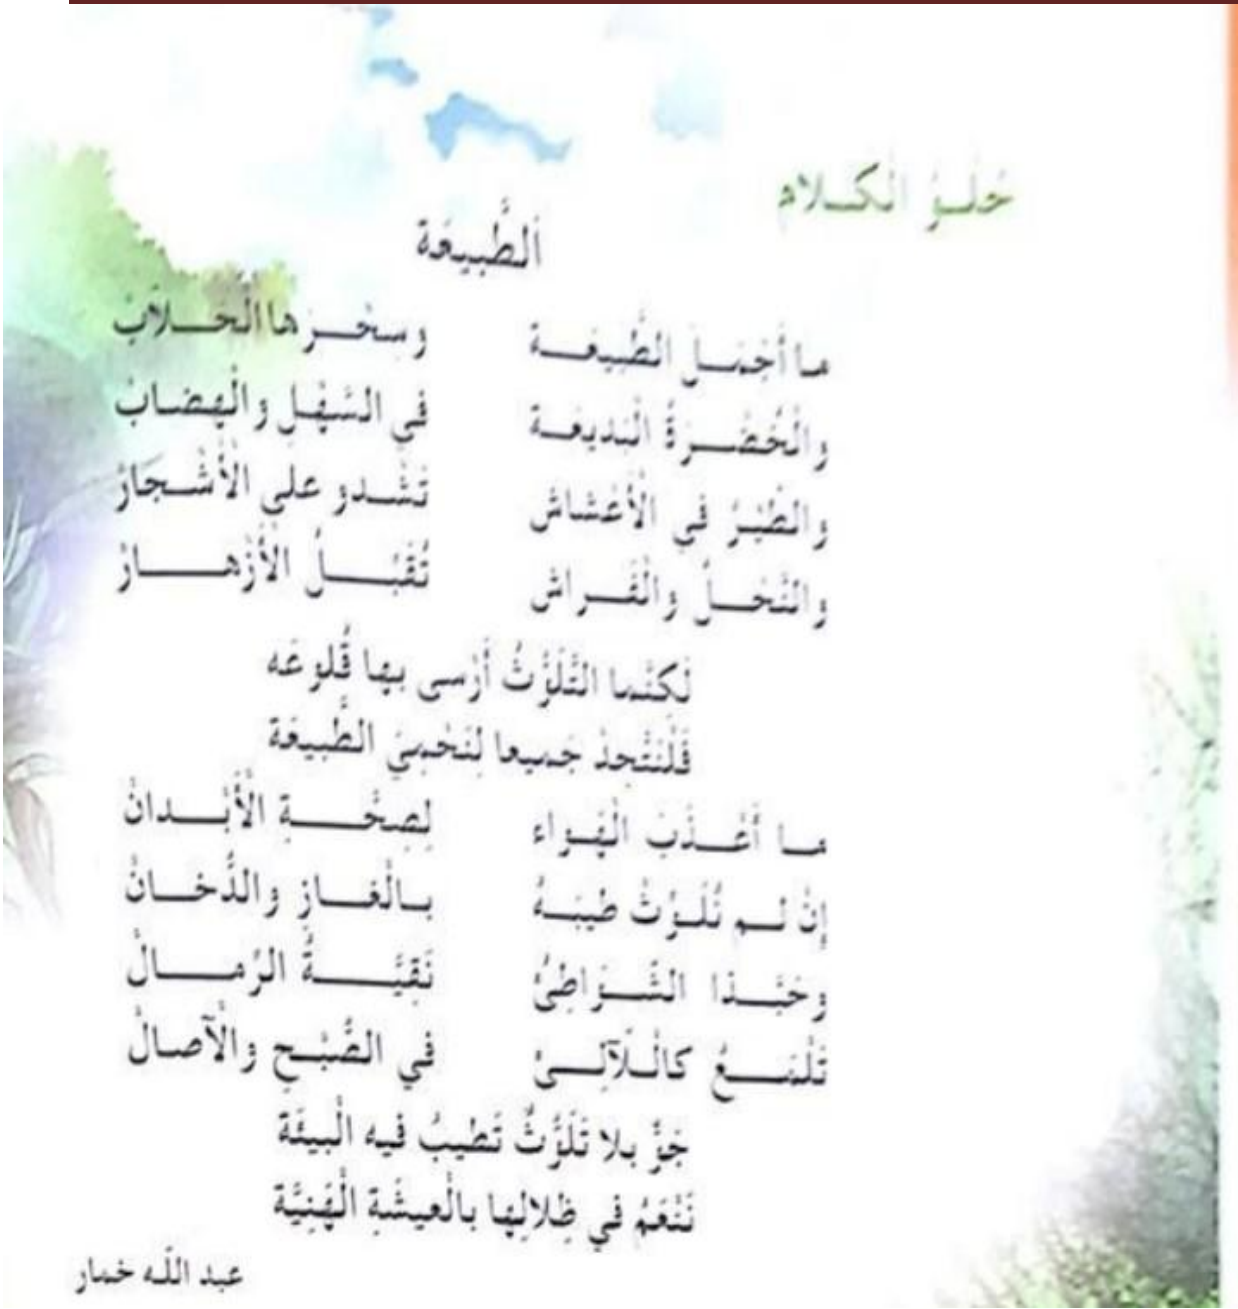 حُلْوُ الْكَلَام
اَلطَّبِيعَة
ما أَجْمَلَ الطَّبِيعَة وسِحْرَها الْخَلاَّبْ
والْخُضْرَةُ الْبَدِيعَة في السَّهْلِ والْهِضابْ
والطَّيْرُ في الْأَعْشاشْ تَشْدو على الْأَشْجارْ
والنَّحْلُ والْفَراشْ تُقَبِّلُ الْأَزْهارْ
لَكنَّما التَّلَوُّثُ أَرْسى بها قُلوعَه
فَلْنَتَّحِدْ جَميعا لِنَحْمِيَ الطَّبيعَة
ما أَعْذَبَ الْهَواء لِصِحَّةِ الْأَبْدانْ
إنْ لم نُلَوِّثْ طيبَهُ بالْغازِ والدُّخانْ
وحَبَّذا الشَّواطِئُ نَقِيَّةُ الرِّمالْ
تَلْمَعُ كالْلآلِئُ في الصُّبْحِ والْآصالْ
جَوٌّ بلا تَلَوُّثٌ تَطيبُ فيه الْبيئَة
نَنْعَمُ في ظِلالِها بالْعيشَةِ الْهَنِيَّة
عبد اللّه خمار